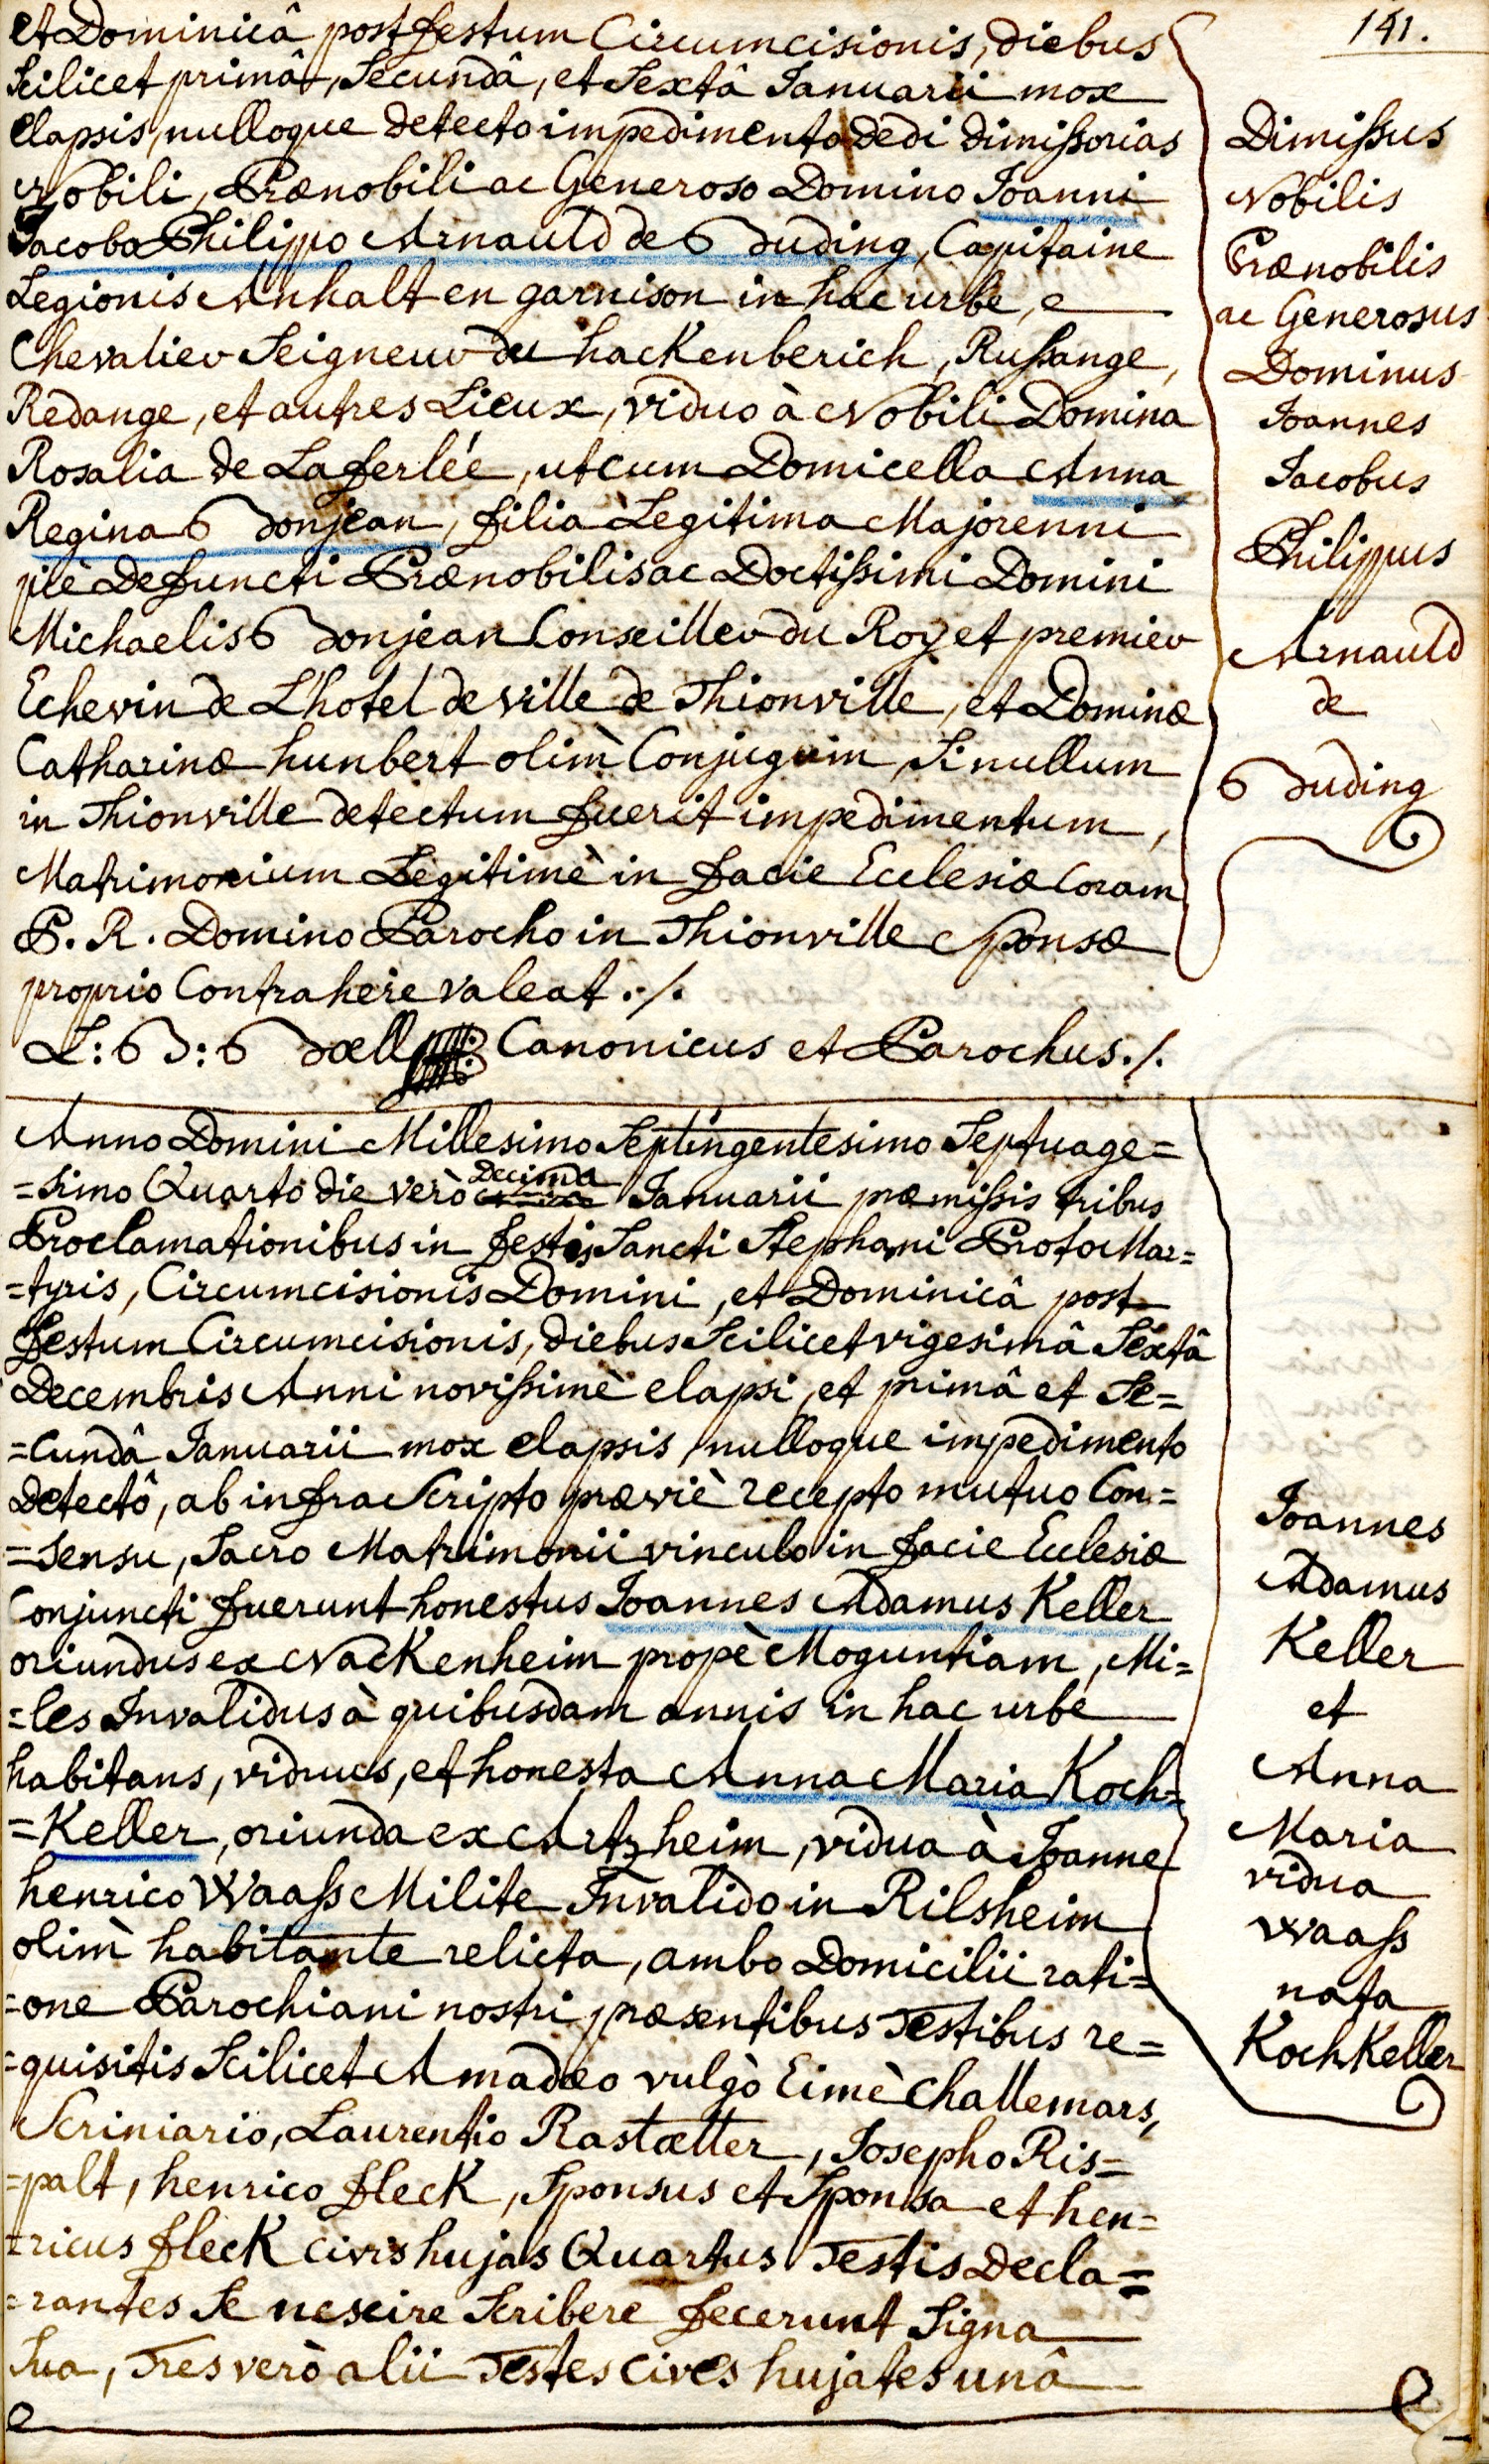 141.
et Dominicâ post festum Circumcisionis, diebus
Scilicet primâ, Secundâ, et Sextâ Januarii mox
elapsis, nulloque detecto impedimento dedi dimissorias
Nobili, Prænobili ac Generoso Domino Joanni
Jacobo Philippo Arnauld de Buding, Capitaine
Legionis Anhalt en garnison in hac urbe, e
Chevalier Seigneur du hackenberich, Russange,
Redange, et autres Lieux, viduo à Nobili Domina
Rosalia de Laferlée, ut cum Domicella Anna
Regina Bonjean, filia Legitima Majorenni
piè Defuncti Prænobilis ac Doctissimi Domini
Michaelis Bonjean Conseiller du Roy et premier
Echevin de L'hotel de ville de Thionville, et Dominæ
Catharinæ hunbert olim Conjugum, Si nullum
in Thionville detectum fuerit impedimentum,
Matrimonium Legitimè in facie Ecclesiæ Coram
P. R. Domino Parocho in Thionville Sponsæ
proprio Contrahere valeat ./.
L: B: Bœll Canonicus et Parochus ./.
Dimissus
Nobilis
Prænobilis
ac Generosus
Dominus
Joannes
Jacobus
Philippus
Arnauld
de
Buding
Anno Domini Millesimo Septingentesimo Septuage=
=simo Quarto die verò Decima Januarii præmissis tribus
Proclamationibus in festis Sancti Stephani ProtoMar=
=tyris, Circumcisionis Domini, et Dominicâ post
festum Circumcisionis, diebus Scilicet vigesimâ Sextâ
Decembris Anni novissimè elapsi, et primâ et Se=
=cundâ Januarii mox elapsis, nulloque impedimento
Detectô, ab infra Scripto præviè recepto mutuo Con=
=sensu, Sacro Matrimonii vinculo in facie Ecclesiæ
Conjuncti fuerunt honestus Joannes Adamus Keller
oriundus ex Nackenheim propè Moguntiam, Mi=
=les Invalidus à quibusdam annis in hac urbe
habitans, viduus, et honesta Anna Maria Koch=
=Keller, oriunda ex Artzheim, vidua à Joanne
henrico Waass Milite Invalido in Rilsheim
olim habitante relicta, ambo Domicilii rati=
=one Parochiani nostri præsentibus Testibus re=
=quisitis Scilicet Amadæo vulgò Eimè Challemars,
Scriniario, Laurentio Rastætter, Josepho Ris=
=palt, henrico fleck, Sponsus et Sponsa et hen=
=ricus fleck civis hujas Quartus Testis Decla=
=rantes Se nescire Scribere fecerunt Signa
Sua, Tres verò alii Testes cives hujates unâ
Joannes
Adamus
Keller
et
Anna
Maria
vidua
Waass
nata
KochKeller